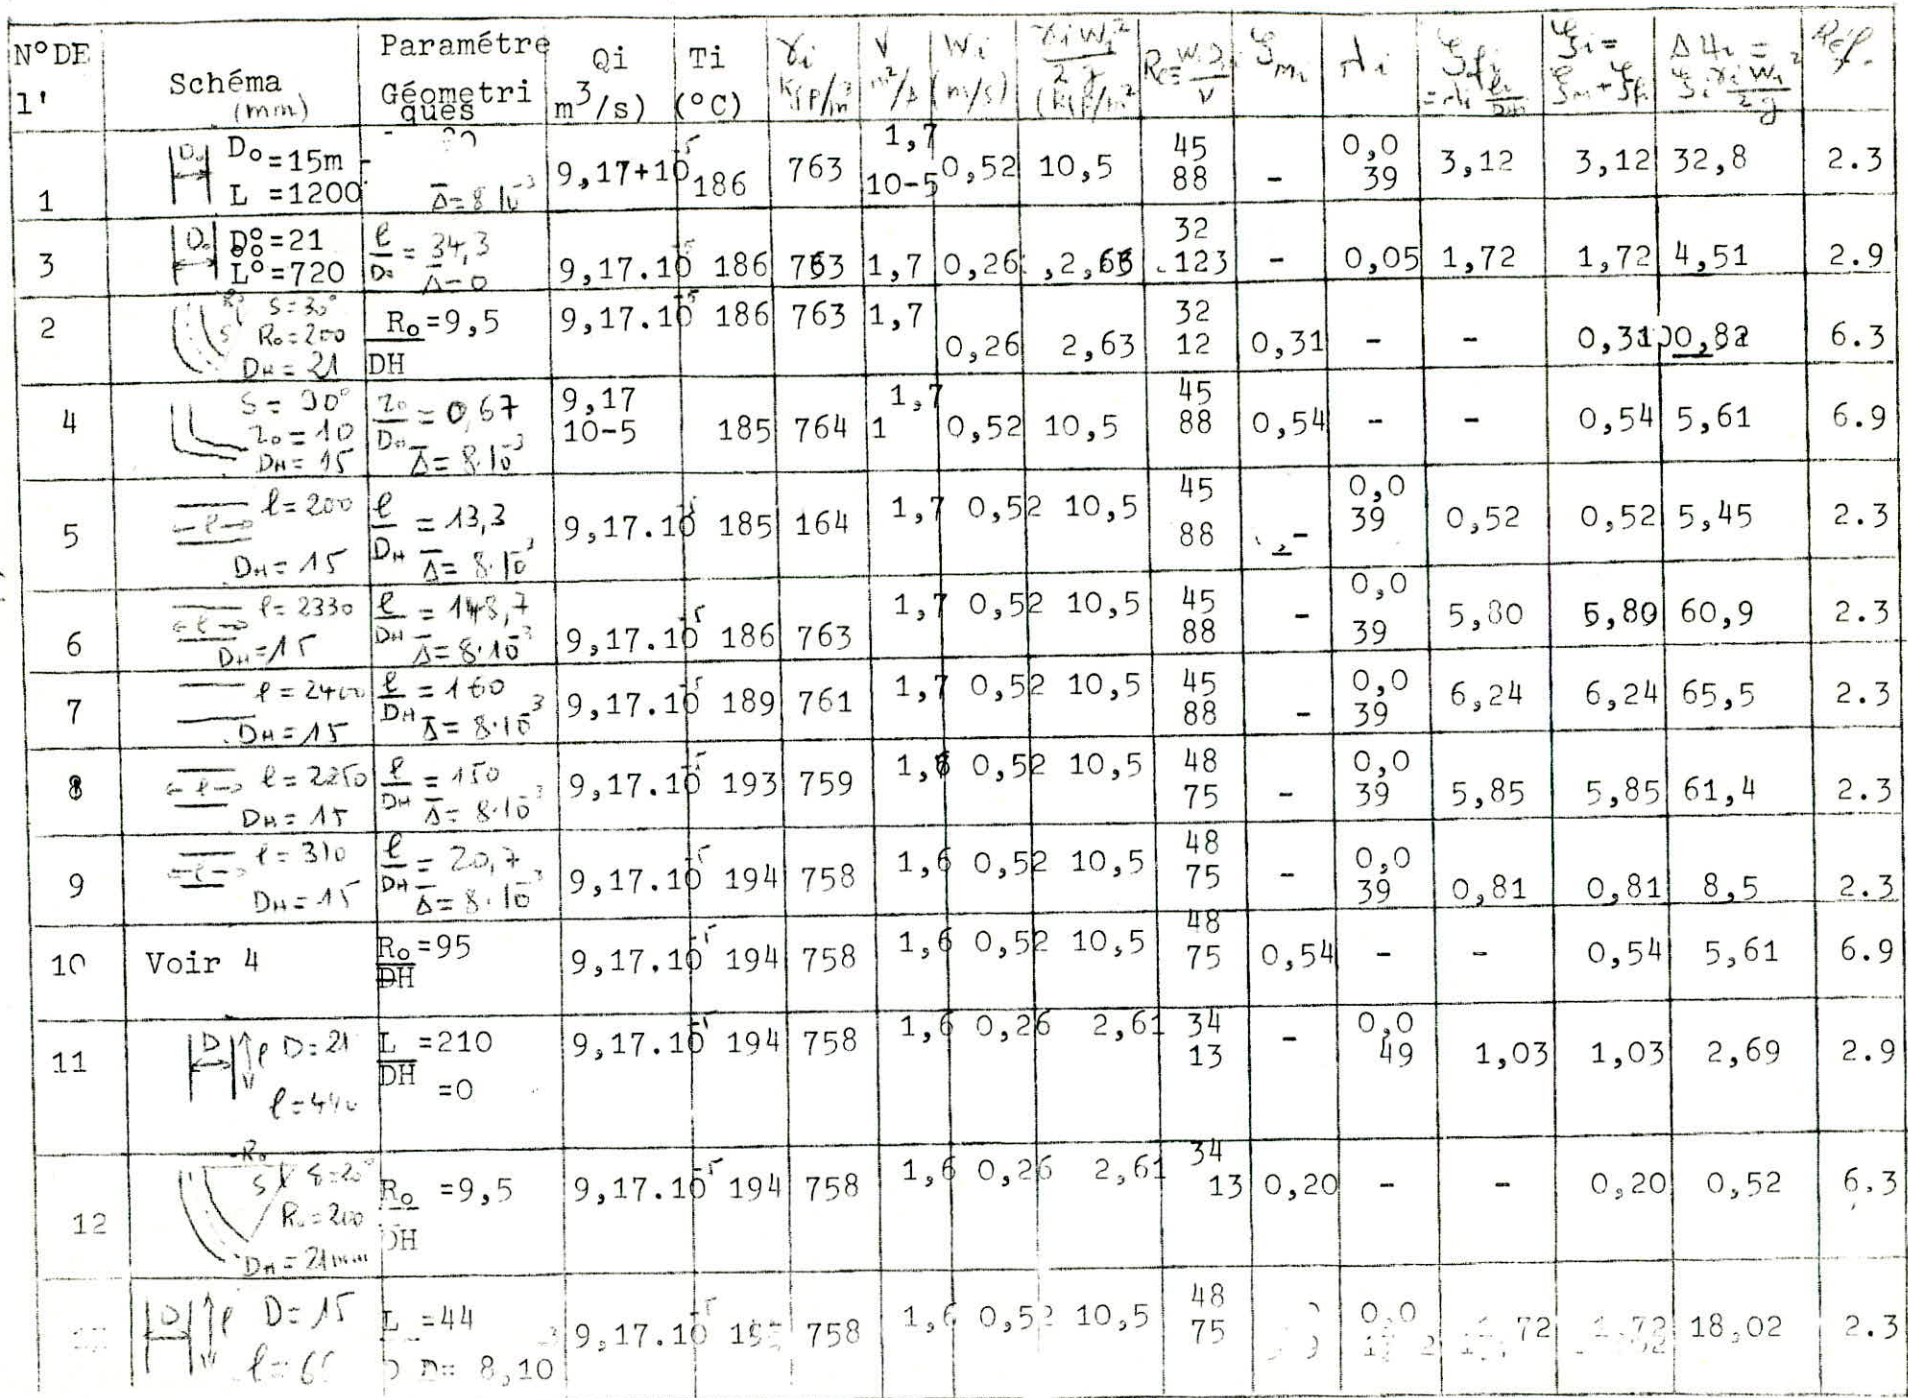 N°DE l' | Schéma (mm) | Paramétre Géometri ques | Qi m³/s) | Ti (°C) | γi Kgp/m³ | V m²/s | Wi (m/s) | γiWi²/2g (Kgp/m²) | Re=W.Di/V | ζmi | λi | ζfi =λi li/DH | ζi= ζm+ζfi | ΔHi = ζi γi Wi²/2g | Réf.
1 | D₀ D₀=15m L =1200 | Δ̄=8 10⁻³ | 9,17+10⁻⁵ | 186 | 763 | 1,7 10-5 | 0,52 | 10,5 | 45 88 | - | 0,0 39 | 3,12 | 3,12 | 32,8 | 2.3
3 | D₀ D°=21 L°=720 | ℓ/D₀ = 34,3 Δ̄=0 | 9,17.10⁻⁵ | 186 | 763 | 1,7 | 0,26 | ,2,63 | 32 .123 | - | 0,05 | 1,72 | 1,72 | 4,51 | 2.9
2 | S=30° R₀=200 DH=21 | R₀/DH =9,5 | 9,17.10⁻⁵ | 186 | 763 | 1,7 | 0,26 | 2,63 | 32 12 | 0,31 | - | - | 0,31 | 0,82 | 6.3
4 | S=90° r₀=10 DH=15 | r₀/DH =0,67 Δ̄=8.10⁻³ | 9,17 10-5 | 185 | 764 | 1,7 1 | 0,52 | 10,5 | 45 88 | 0,54 | - | - | 0,54 | 5,61 | 6.9
5 | ℓ ℓ=200 DH=15 | ℓ/DH =13,3 Δ̄=8.10⁻³ | 9,17.10⁻⁵ | 185 | 164 | 1,7 | 0,52 | 10,5 | 45 88 | - | 0,0 39 | 0,52 | 0,52 | 5,45 | 2.3
6 | ℓ ℓ=2330 DH=15 | ℓ/DH =148,7 Δ̄=8.10⁻³ | 9,17.10⁻⁵ | 186 | 763 | 1,7 | 0,52 | 10,5 | 45 88 | - | 0,0 39 | 5,80 | 5,80 | 60,9 | 2.3
7 | ℓ=2400 DH=15 | ℓ/DH =160 Δ̄=8.10⁻³ | 9,17.10⁻⁵ | 189 | 761 | 1,7 | 0,52 | 10,5 | 45 88 | - | 0,0 39 | 6,24 | 6,24 | 65,5 | 2.3
8 | ℓ ℓ=2250 DH=15 | ℓ/DH =150 Δ̄=8.10⁻³ | 9,17.10⁻⁵ | 193 | 759 | 1,6 | 0,52 | 10,5 | 48 75 | - | 0,0 39 | 5,85 | 5,85 | 61,4 | 2.3
9 | ℓ ℓ=310 DH=15 | ℓ/DH =20,7 Δ̄=8.10⁻³ | 9,17.10⁻⁵ | 194 | 758 | 1,6 | 0,52 | 10,5 | 48 75 | - | 0,0 39 | 0,81 | 0,81 | 8,5 | 2.3
10 | Voir 4 | R₀/DH =95 | 9,17.10⁻⁵ | 194 | 758 | 1,6 | 0,52 | 10,5 | 48 75 | 0,54 | - | - | 0,54 | 5,61 | 6.9
11 | D ℓ D=21 ℓ=440 | L/DH =210 =0 | 9,17.10⁻⁵ | 194 | 758 | 1,6 | 0,26 | 2,61 | 34 13 | - | 0,0 49 | 1,03 | 1,03 | 2,69 | 2.9
12 | R₀ S S=20° R₀=200 DH=21mm | R₀/DH =9,5 | 9,17.10⁻⁵ | 194 | 758 | 1,6 | 0,26 | 2,61 | 34 13 | 0,20 | - | - | 0,20 | 0,52 | 6.3
D ℓ D=15 | L =44 D= 8,10 | 9,17.10⁻⁵ | 758 | 1,6 | 0,52 | 10,5 | 48 75 | 0,0 | 72 | 1,72 | 18,02 | 2.3